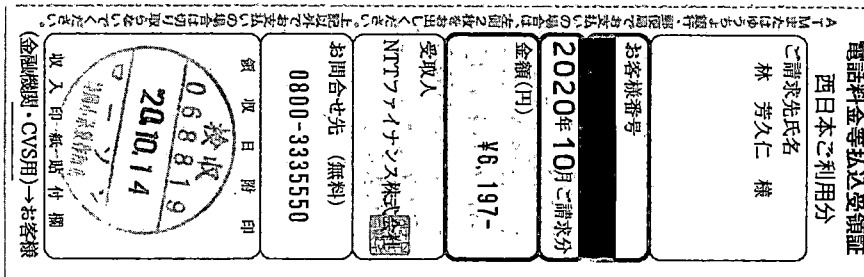 電話料金等払込受領証
西日本ご利用分
ご請求先氏名
林 芳久仁 様
お客様番号
2020年10月ご請求分
金額(円)
¥6,197-
受取人
NTTファイナンス株式会社
お問合せ先 (無料)
0800-3335550
領収日附印
領収
068819
20.10.14
収入印紙貼付欄
(金融機関・CVS用)→お客様
ATMまたはゆうちょ銀行・郵便局でお支払いの場合は、左側2枚をお出しください。上記以外でお支払いの場合は切り取らないでください。